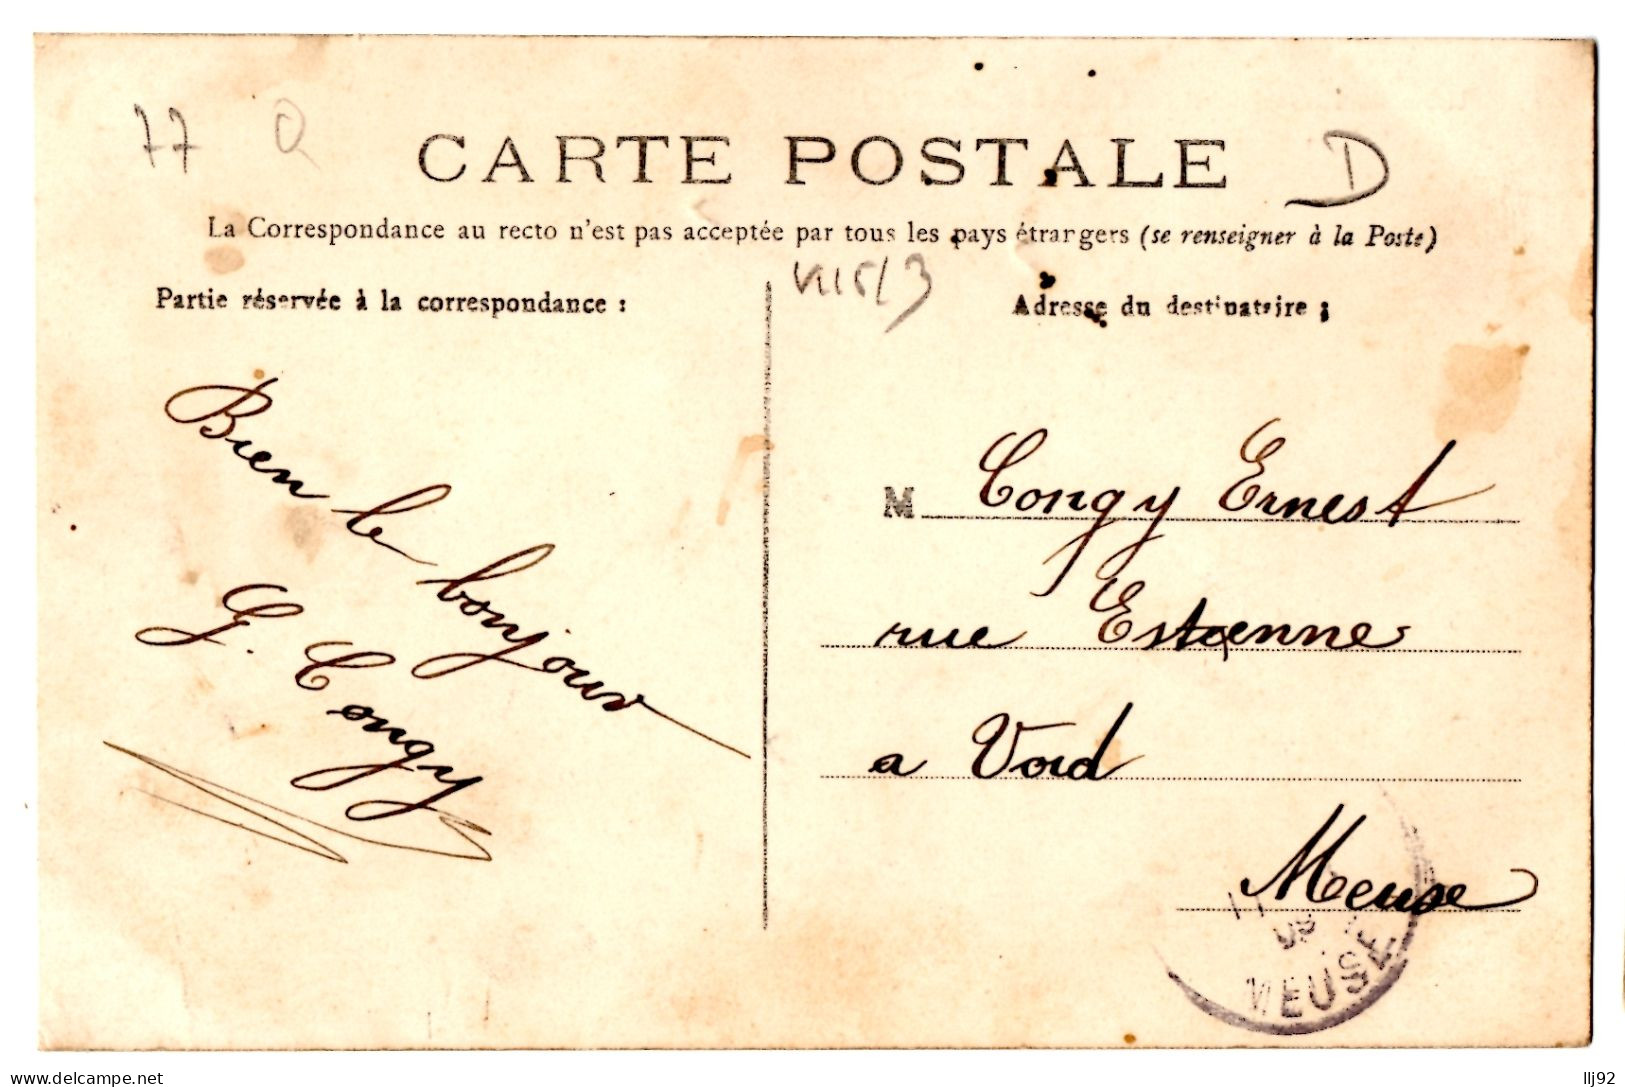 77 Q
CARTE POSTALE D
La Correspondance au recto n'est pas acceptée par tous les pays étrangers (se renseigner à la Poste)
Partie réservée à la correspondance :
Adresse du destinataire :
Bien le bonjour
G. Congy
M Congy Ernest
rue Estienne
a Void
Meuse
MEUSE
delcampe.net
llj92